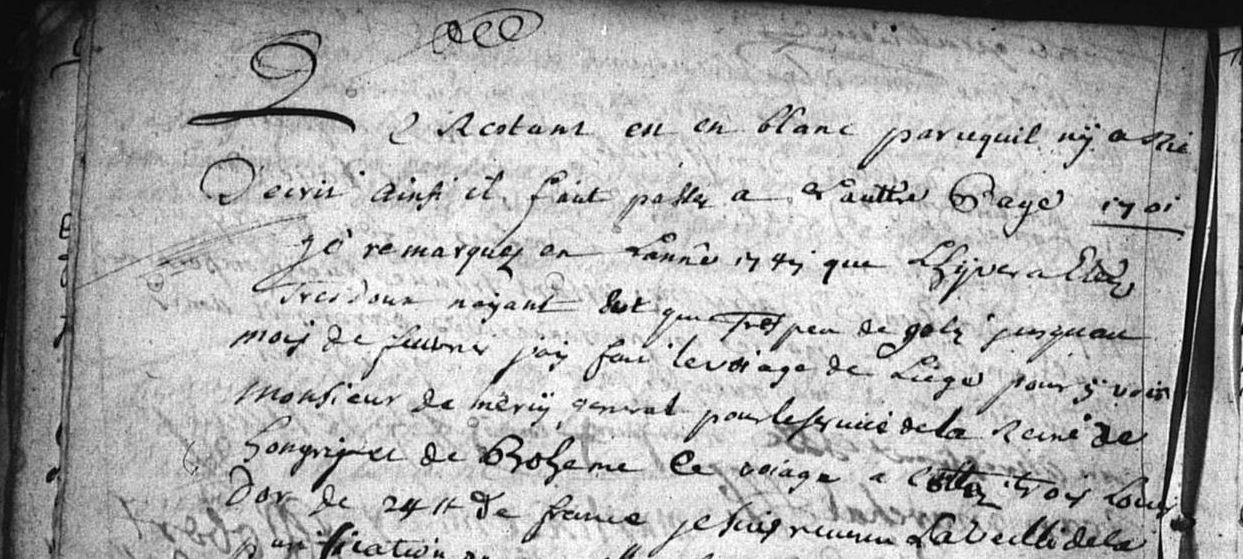 Le Restant est en blanc parcequil ny a Rie
Decrit ainsi il faut passer a Lauttre Page 1701
Jé remarquez en Lannê 1747 que Lhyver a Etéz
Tres doux nayant eut que Tres peu de gelz jusquau
mois de feuvrié jay fait le voiage de Liège pour y voir
monsieur de mercy general pour le service de la Reine de
hongrie et de Boheme Ce voiage a Couttez trois Louis
Dor de 24 tt de france je suis revenu La Veille de la
purification